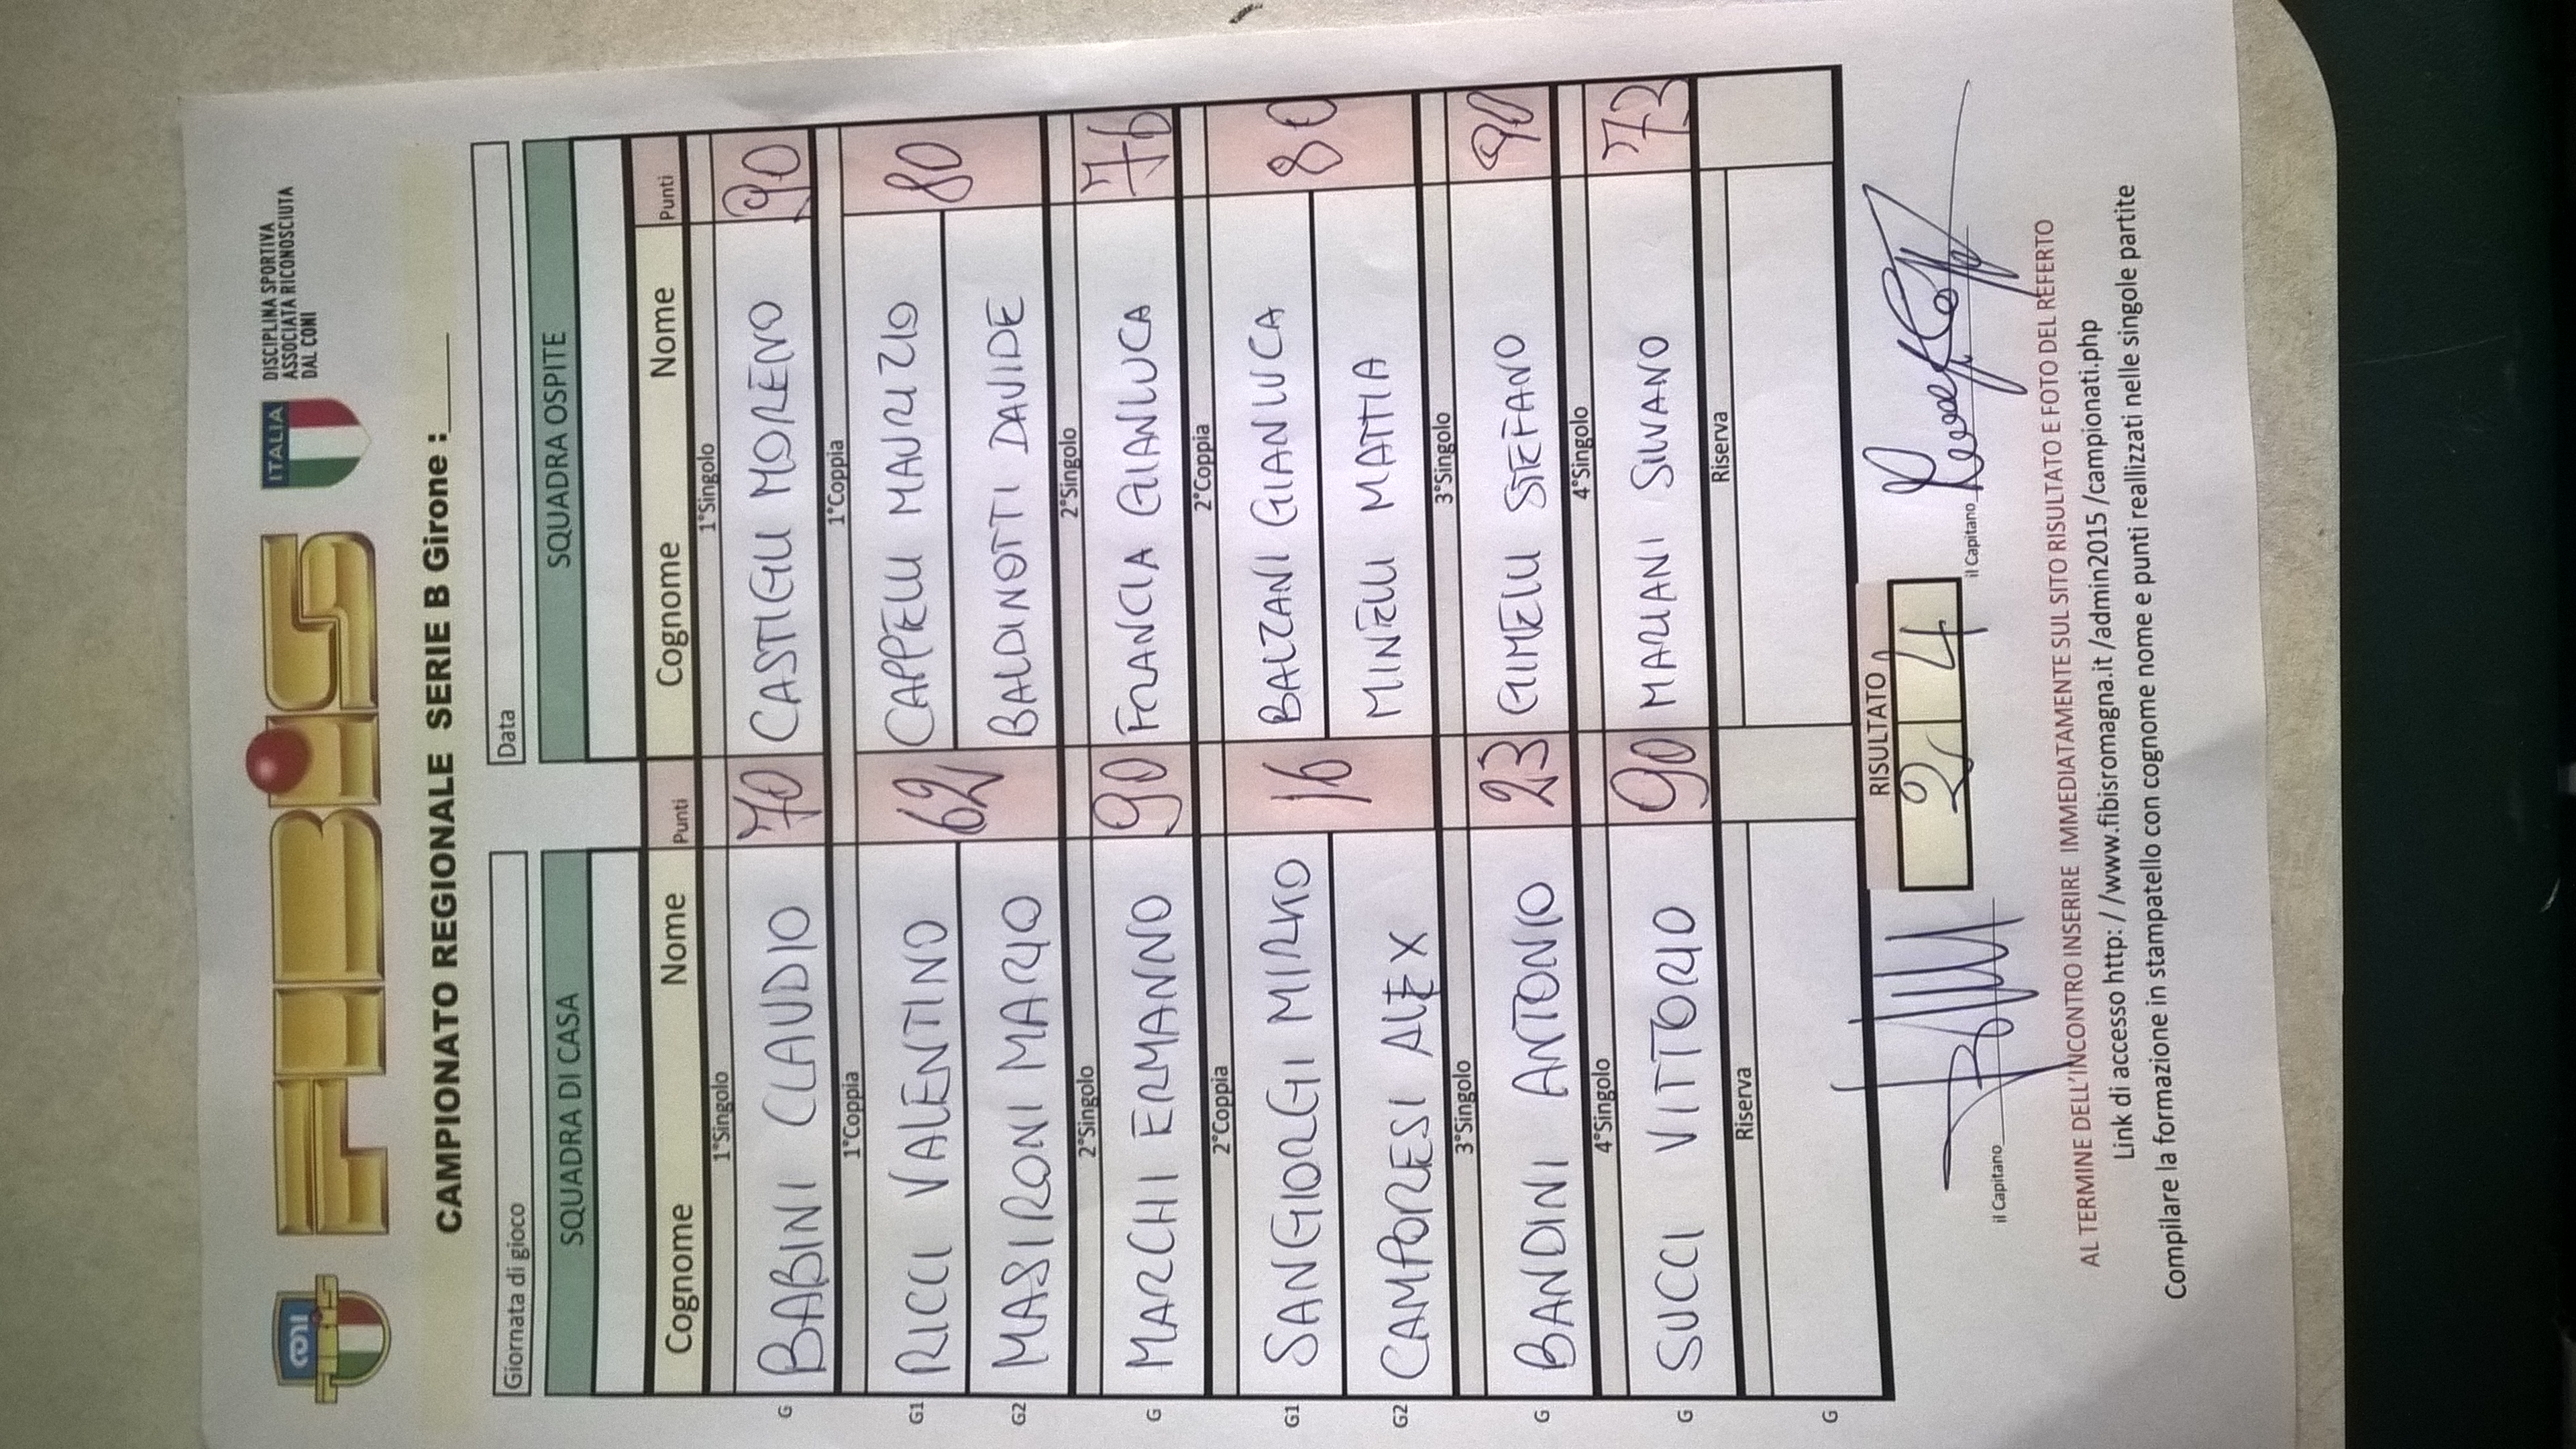 CONI
FIBiS
FIBiS
ITALIA
DISCIPLINA SPORTIVA
ASSOCIATA RICONOSCIUTA
DAL CONI
CAMPIONATO REGIONALE SERIE B Girone :____
Giornata di gioco
Data
SQUADRA DI CASA SQUADRA OSPITE
Cognome Nome Punti Cognome Nome Punti
1°Singolo 1°Singolo
G BABINI CLAUDIO 70 CASTIGLI MORENO 90
1°Coppia 1°Coppia
G1 RICCI VALENTINO 62 CAPPELLI MAURIZIO 80
G2 MASIRONI MARIO BALDINOTTI DAVIDE
2°Singolo 2°Singolo
G MARCHI ERMANNO 90 FRANCIA GIANLUCA 76
2°Coppia 2°Coppia
G1 SANGIORGI MIRKO 16 BALZANI GIANLUCA 80
G2 CAMPORESI ALEX MINELLI MATTIA
3°Singolo 3°Singolo
G BANDINI ANTONIO 23 GIMELLI STEFANO 90
4°Singolo 4°Singolo
G SUCCI VITTORIO 90 MARIANI SILVANO 73
Riserva Riserva
G
RISULTATO
2 4
il Capitano il Capitano
AL TERMINE DELL'INCONTRO INSERIRE IMMEDIATAMENTE SUL SITO RISULTATO E FOTO DEL REFERTO
Link di accesso http: / /www.fibisromagna.it /admin2015 /campionati.php
Compilare la formazione in stampatello con cognome nome e punti reallizzati nelle singole partite